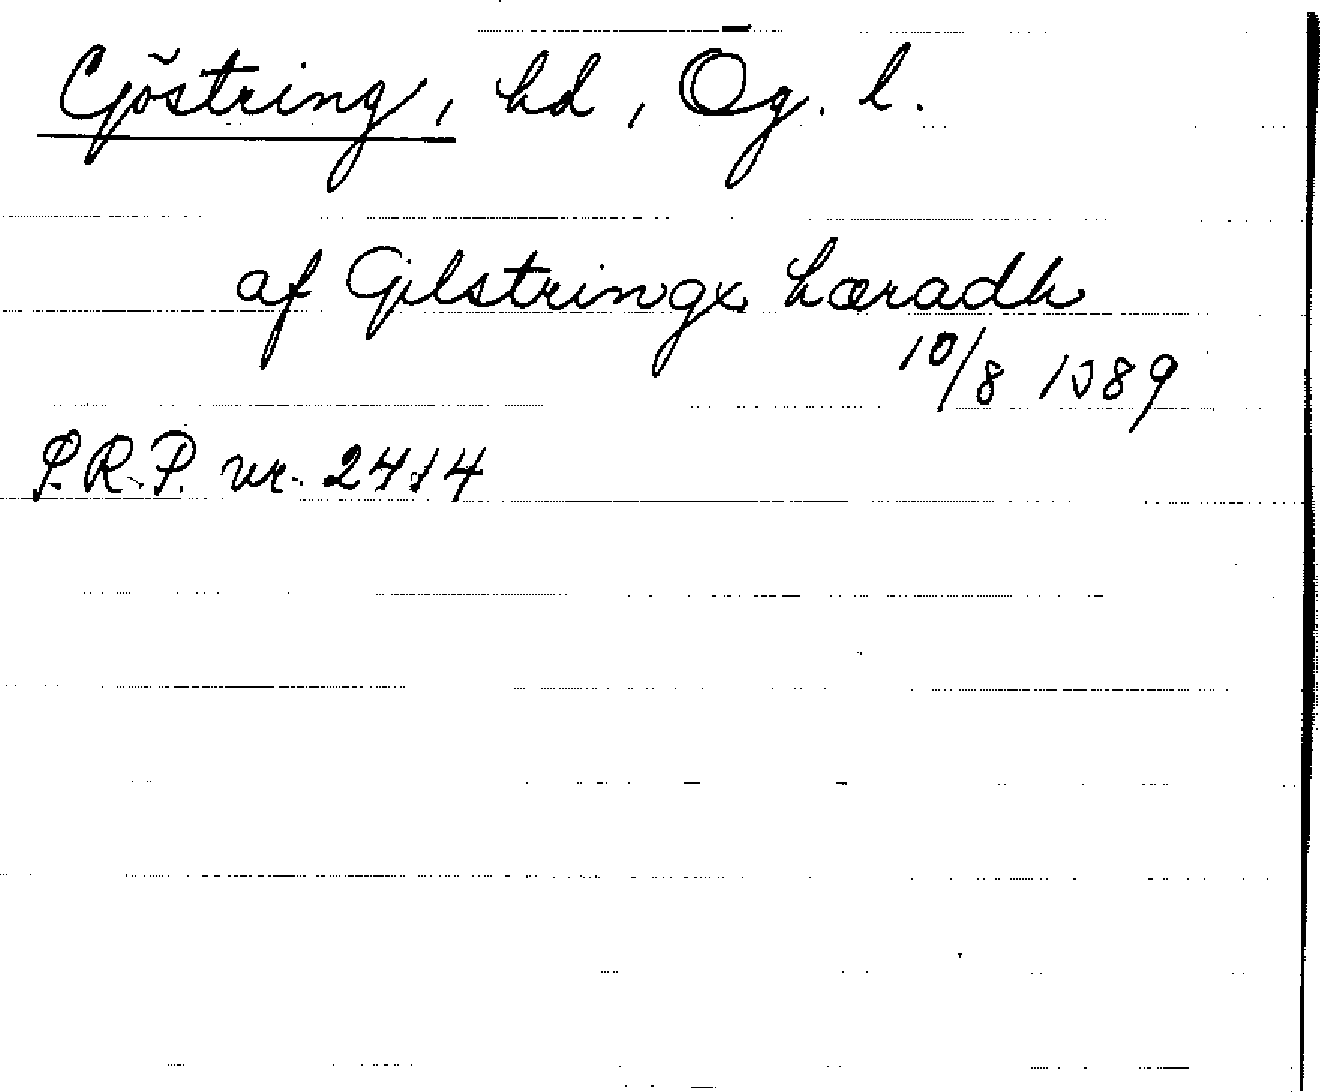 Göstring, hd, Ög. l.
af Gilstringx hæradh
10/8 1389
S.R.P. nr. 2414